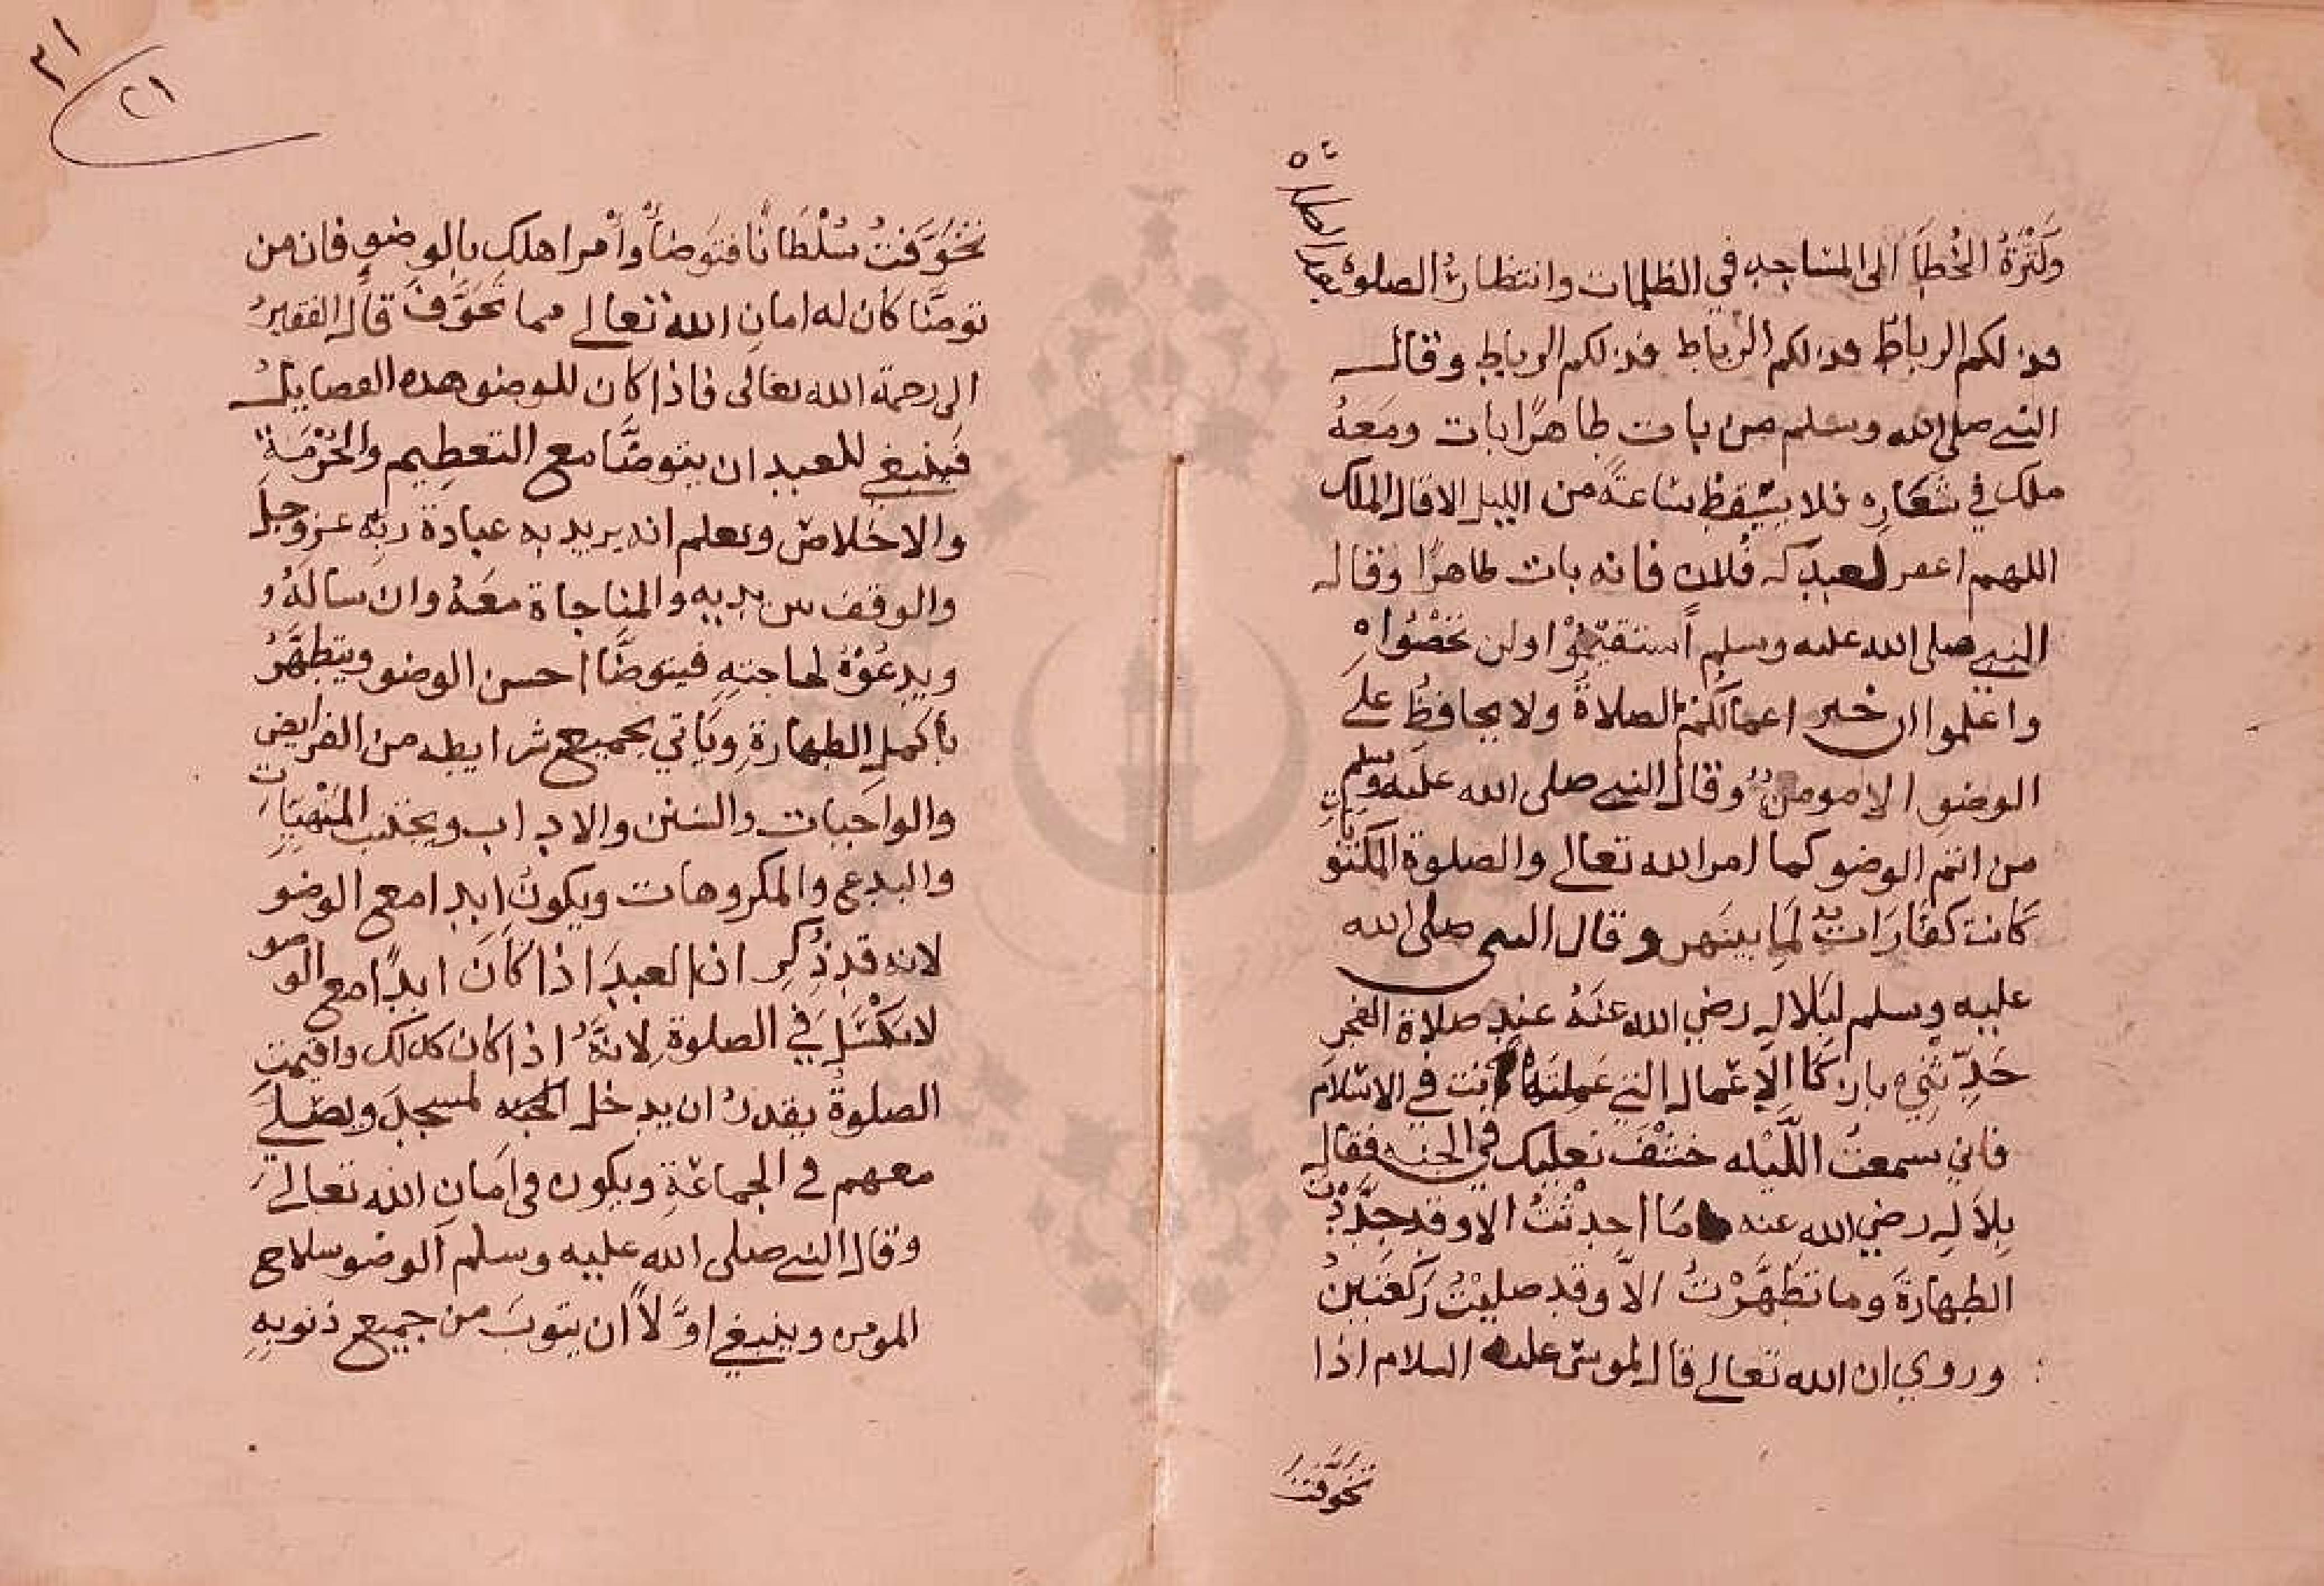 وَكَثْرَةُ الخُطَا الى المسَاجد في الظلمات وانتظارُ الصلوة
بعد الصلاة
فذلكم الرباط فذلكم الرباط فذلكم الرباط وقال
النبي صلى الله وسلم من بات طاهرًا بات ومَعَهُ
ملك في شعَارِه فلا يستيقظ ساعَةً من الليل الا قال الملك
اللهم اغفر لعبدك فُلان فانه بات طاهرًا وقال
النبي صلى الله عليه وسلم استقيمُوْا ولن تحْصُوا
واعْلموا ان خير اعمالكُمْ الصلاةُ ولا يحافظُ على
الوضو الا مومنٌ وقال النبي صلى الله عليه وسلم
من اتم الوضو كما امر الله تعالى والصلوة المكتو
بات
كانت كفَّارَات لمَا بينَهن وقال النبى صلى الله
عليه وسلم لبَلال رضي الله عَنْهُ عند صلاة الفجر
حَدِّثْنِي بارْكَا الاعْمال التي عَمِلتَهَا كانت في الاسْلام
فاني سمعتُ اللَّيْله خشْفَ نعليك في الجنه فقال
بِلاَل رضي الله عنه مَا احدثْتُ الا وقد جدَّدْت
الطهارة وما تطَهَّرْتُ الاَّ وقد صليْتُ رَكعَتينُ
وروي ان الله تعالى قال لموسى عليه السلام اذا
تخوَّفت
٣١
٢١
تخَوَّفتُ سُلْطَانًا فتوَضأْ وأْمر اهلك بالوضوِ فان من
توضَّا كان له امان الله تعالى مما تخَوَّف قال الفقيرُ
الى رحمة الله تعالى فاذا كان للوضو هذه الفضايل
فينبغي للعبد ان يتوضَّا مع التعطِيم والحُرْمَةِ
والاخلاص ويعلم انه يريد به عبادة ربِّه عز وجل
والوقف بين يديه والمناجاة معَهُ وان سالَهُ و
ويدعُوْهُ لحاجتهِ فيتوضَّا احسن الوضو ويتطهَّرُ
باكمل الطهارةِ ويَاتي بجميع شرايطه من الفرايض
والواجبات والسُنن والاداب ويجتنب المَنْهيَات
والبدع والمكروهات ويكونُ ابدا مع الوضو
لانه قد ذُكِر ان العبدَ اذا كانَ ابدًا مع الوضو
لا يكْسَل في الصلوة لانَّهُ اذا كان كذلك واقيمت
الصلوة يقدرُ ان يدخل المسجدَ ويصَلي
معهم في الجماعَةِ ويكون في اَمان الله تعالى
وقال النبي صلى الله عليه وسلم الوضو سلاح
المومن وينبغي اوَّلاً ان يتوبَ من جميع ذنوبهِ